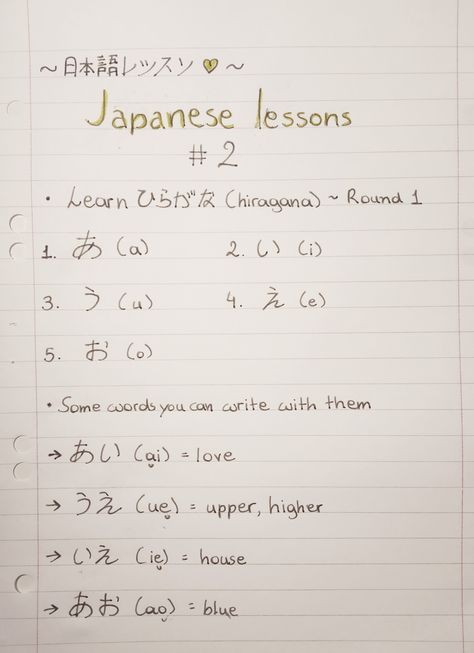 ~日本語レッスン ♡ ~
Japanese lessons
# 2
• Learn ひらがな (hiragana) ~ Round 1
1. あ (a) 2. い (i)
3. う (u) 4. え (e)
5. お (o)
• Some words you can write with them
→ あい (ai) = love
→ うえ (ue) = upper, higher
→ いえ (ie) = house
→ あお (ao) = blue